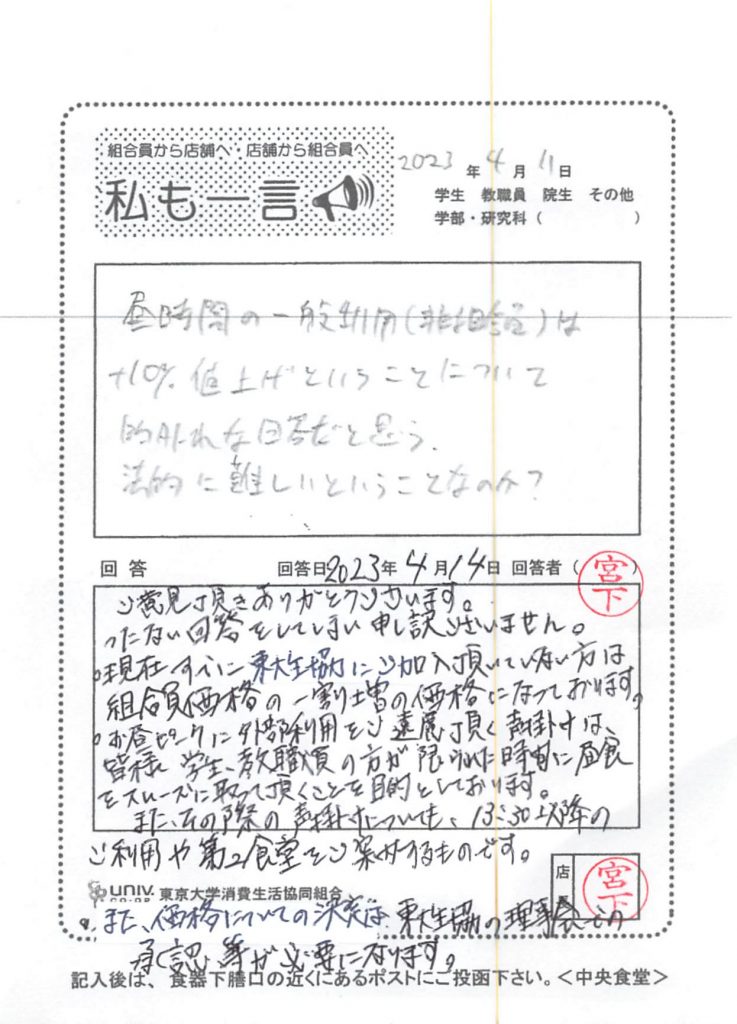 組合員から店舗へ・店舗から組合員へ
私も一言
2023年4月11日
学生 教職員 院生 その他
学部・研究科( )
昼時間の一般利用(非組合員)は
+10%値上げということについて
的外れな回答だと思う。
法的に難しいということなのか?
回答 回答日2023年4月14日 回答者(宮下)
ご意見頂きありがとうございます。
つたない回答をしてしまい申し訳ございません。
○現在すでに東大生協にご加入頂いていない方は
組合員価格の一割増の価格になっております。
○お昼ピークに外部利用をご遠慮頂く声掛けは、
皆様 学生、教職員の方が限られた時間に昼食
をスムーズに取って頂くことを目的としております。
また、その際の声掛けについても、13:30以降の
ご利用や第2食堂をご案内するものです。
univ. CO-OP 東京大学消費生活協同組合
店長 宮下
また、価格についての決定は東大生協の理事会での
承認等が必要になります。
記入後は、食器下膳口の近くにあるポストにご投函下さい。<中央食堂>